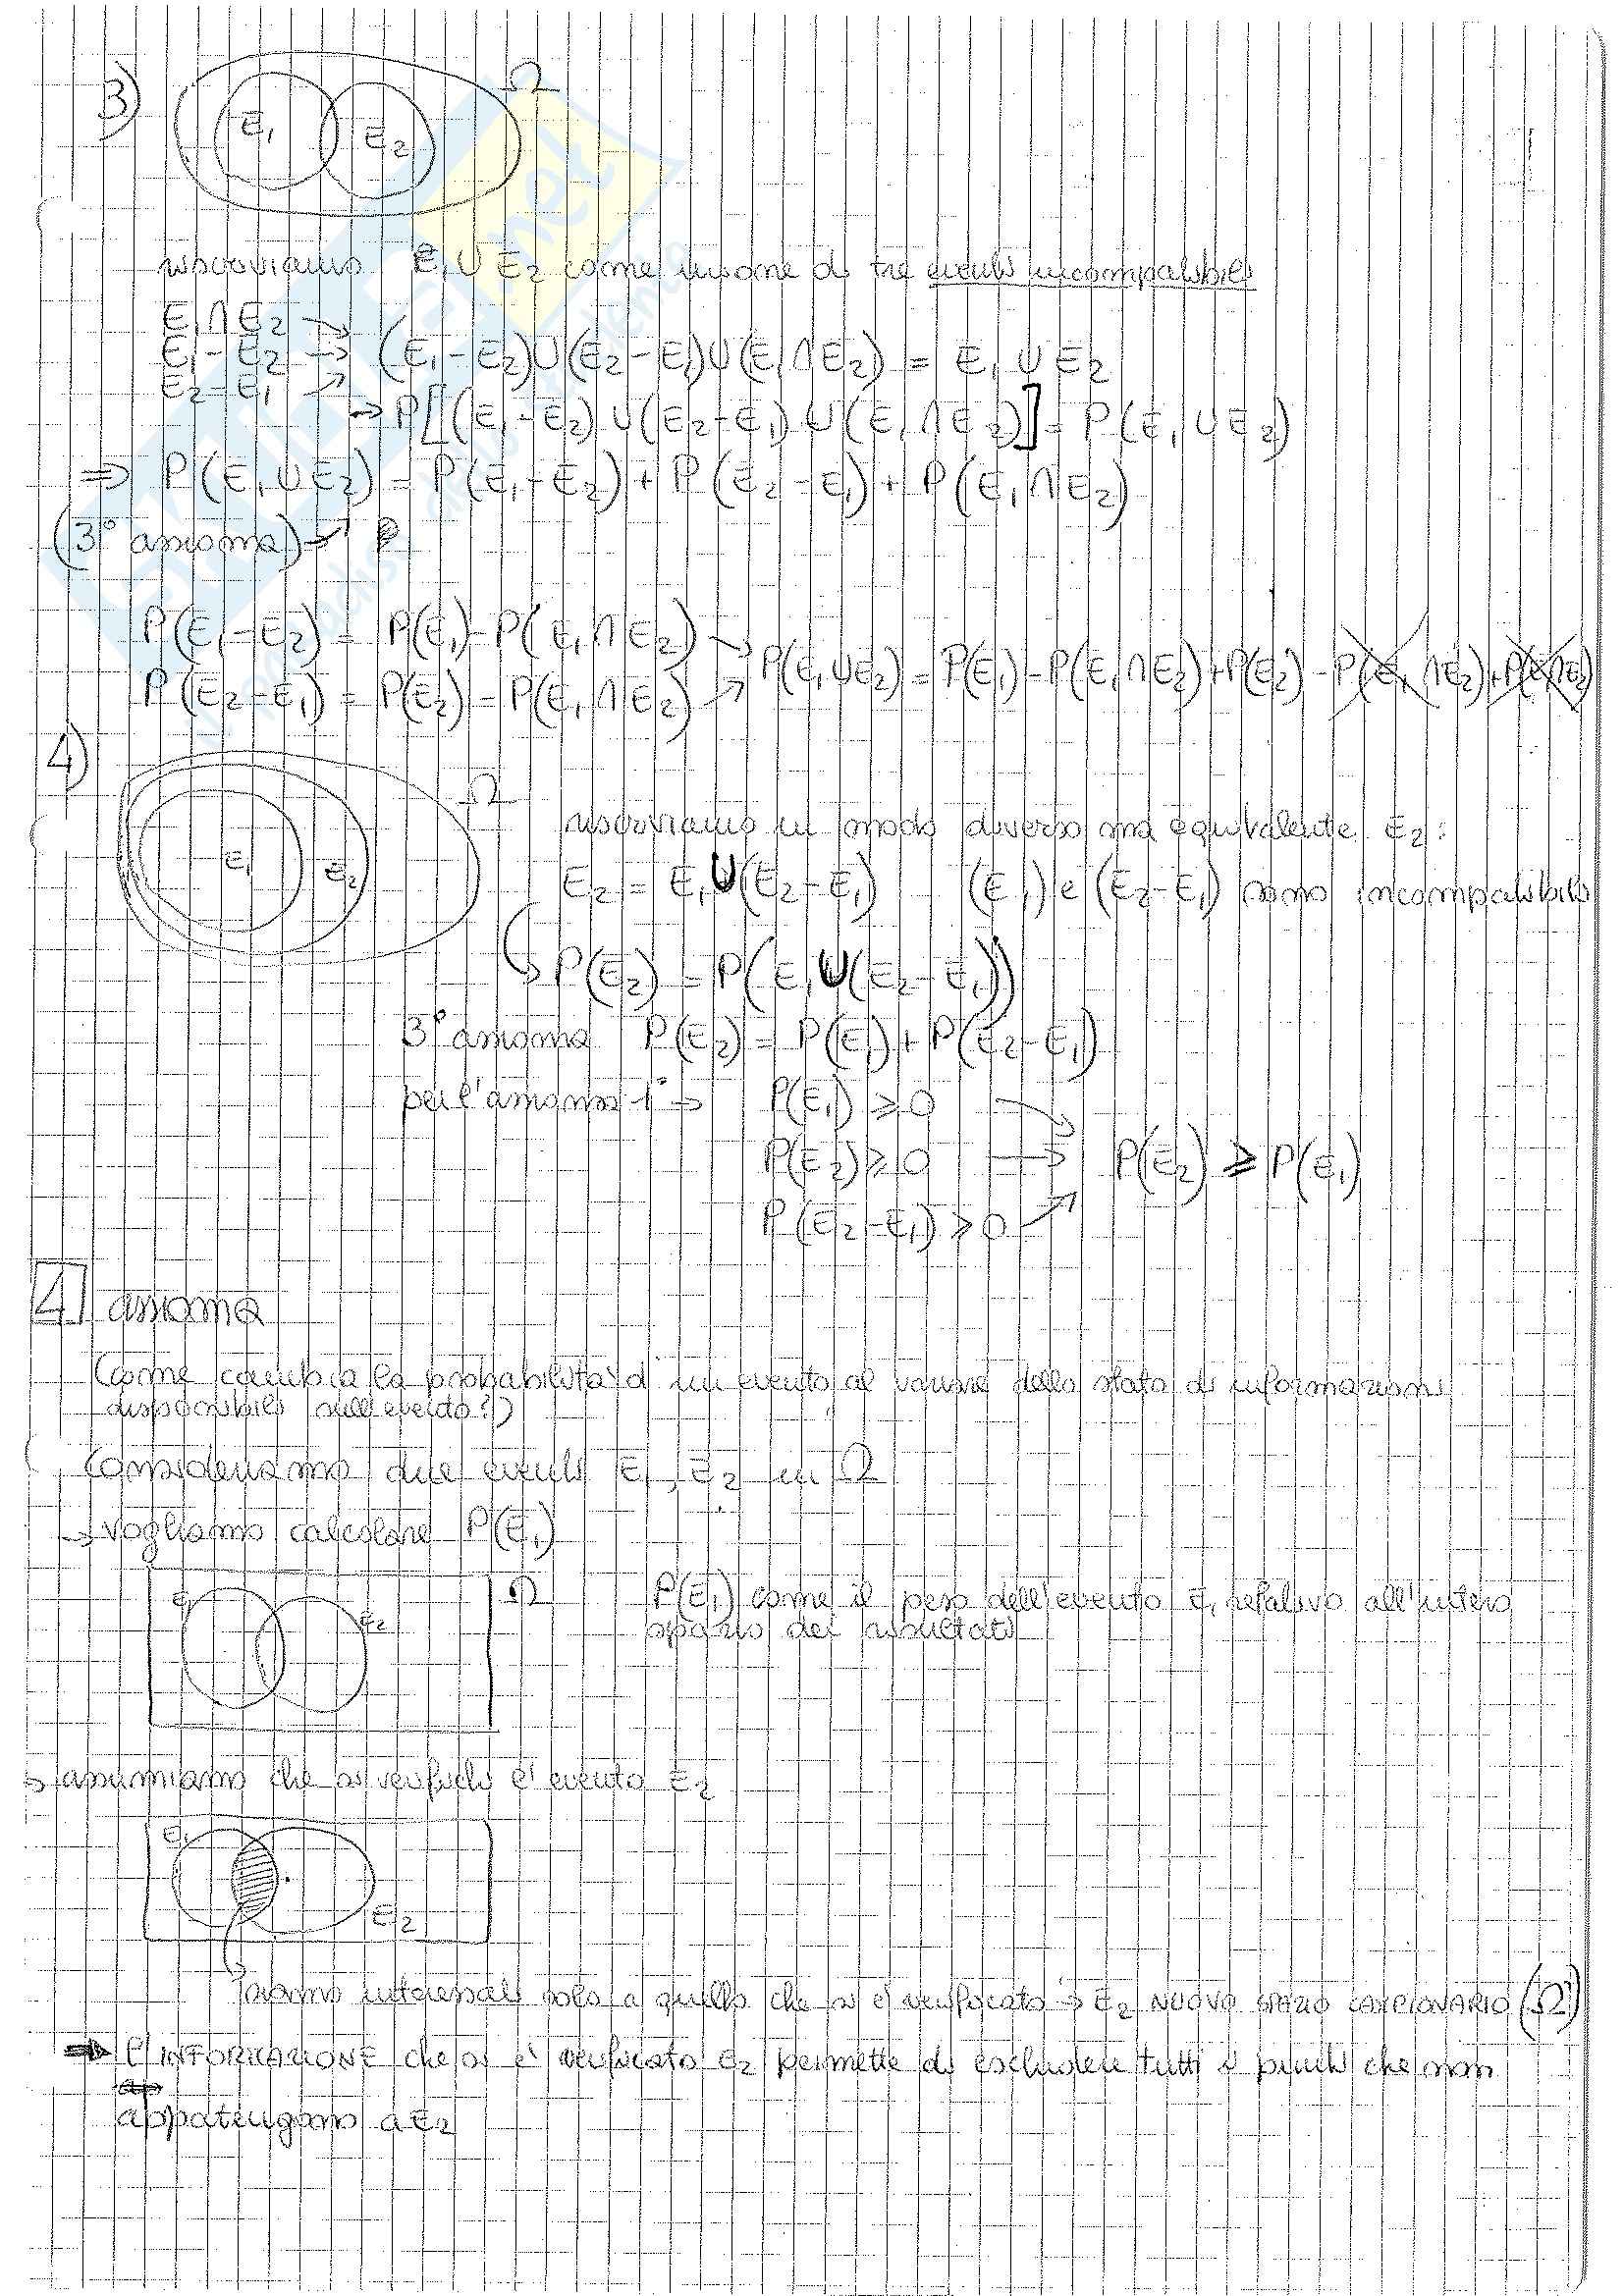 3)
Ω
E₁
E₂
riscriviamo E₁∪E₂ come unione di tre eventi incompatibili
E₁∩E₂ →
E₁-E₂ → (E₁-E₂)∪(E₂-E₁)∪(E₁∩E₂) = E₁∪E₂
E₂-E₁ →
→ P[(E₁-E₂)∪(E₂-E₁)∪(E₁∩E₂)] = P(E₁∪E₂)
⇒ P(E₁∪E₂) = P(E₁-E₂) + P(E₂-E₁) + P(E₁∩E₂)
(3° assioma) →
P(E₁-E₂) = P(E₁) - P(E₁∩E₂) →
P(E₁∪E₂) = P(E₁) - P(E₁∩E₂) + P(E₂) - P(E₁∩E₂) + P(E₁∩E₂)
P(E₂-E₁) = P(E₂) - P(E₁∩E₂) →
4)
Ω
E₁
E₂
riscriviamo in modo diverso ma equivalente E₂:
E₂ = E₁∪(E₂-E₁) (E₁) e (E₂-E₁) sono incompatibili
→ P(E₂) = P(E₁∪(E₂-E₁))
3° assioma P(E₂) = P(E₁) + P(E₂-E₁)
per l'assioma 1° → P(E₁) ≥ 0 →
P(E₂) ≥ 0 → P(E₂) ≥ P(E₁)
P(E₂-E₁) ≥ 0 →
4 assioma
(come cambia la probabilità di un evento al variare dello stato di informazioni
disponibili sull'evento?)
Consideriamo due eventi E₁, E₂ in Ω
→ vogliamo calcolare P(E₁)
E₁
E₂
Ω
P(E₁) come il peso dell'evento E₁ relativo all'intero
spazio dei risultati
→ assumiamo che si verifichi l'evento E₂
E₁
E₂
siamo interessati solo a quello che si è verificato → E₂ NUOVO SPAZIO CAMPIONARIO (Ω)
→ l'INFORMAZIONE che si è verificato E₂ permette di escludere tutti i punti che non
appatengono a E₂